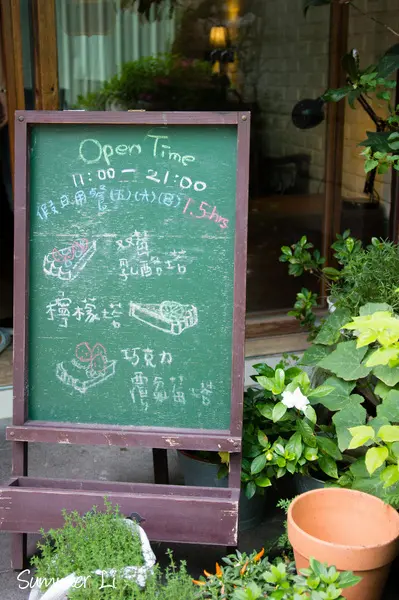 Open Time
11:00 - 21:00
假日用餐(五)(六)(日) 1.5hrs
双莓
乳酪塔
檸檬塔
巧克力
覆盆莓塔
Summer Li